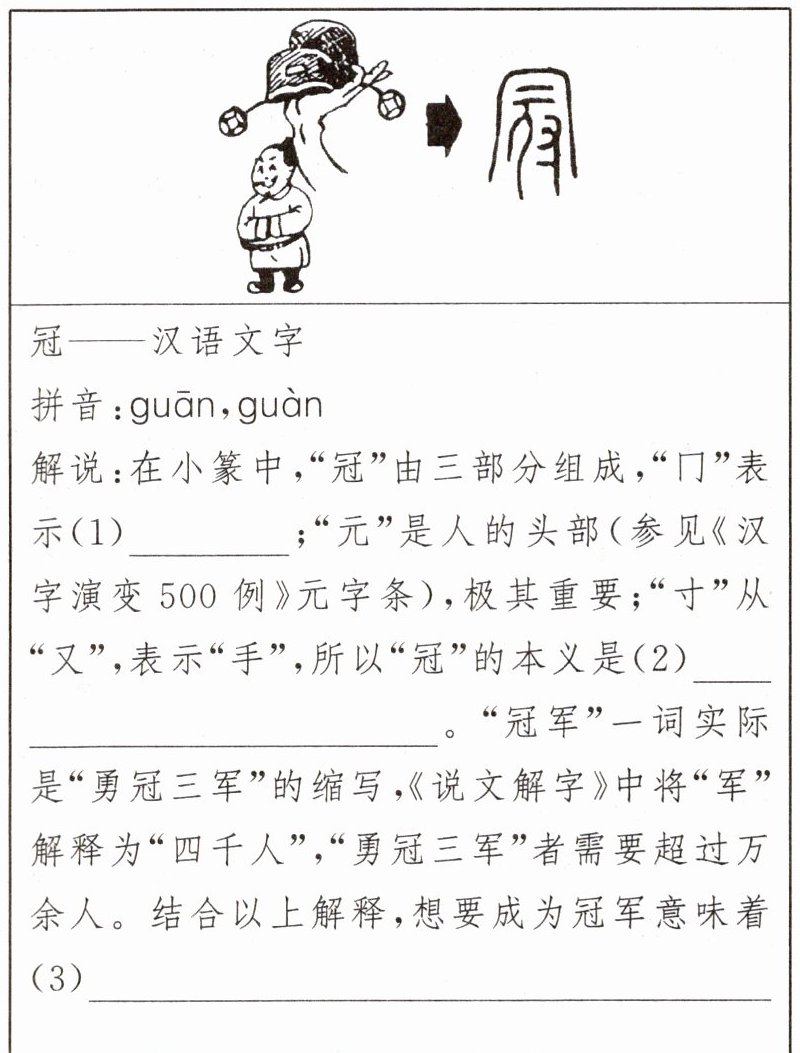 冠——汉语文字
拼音:guān,guàn
解说:在小篆中,“冠”由三部分组成,“冂”表
示(1)________;“元”是人的头部(参见《汉
字演变500例》元字条),极其重要;“寸”从
“又”,表示“手”,所以“冠”的本义是(2)____
____________________。“冠军”一词实际
是“勇冠三军”的缩写,《说文解字》中将“军”
解释为“四千人”,“勇冠三军”者需要超过万
余人。结合以上解释,想要成为冠军意味着
(3)__________________________________